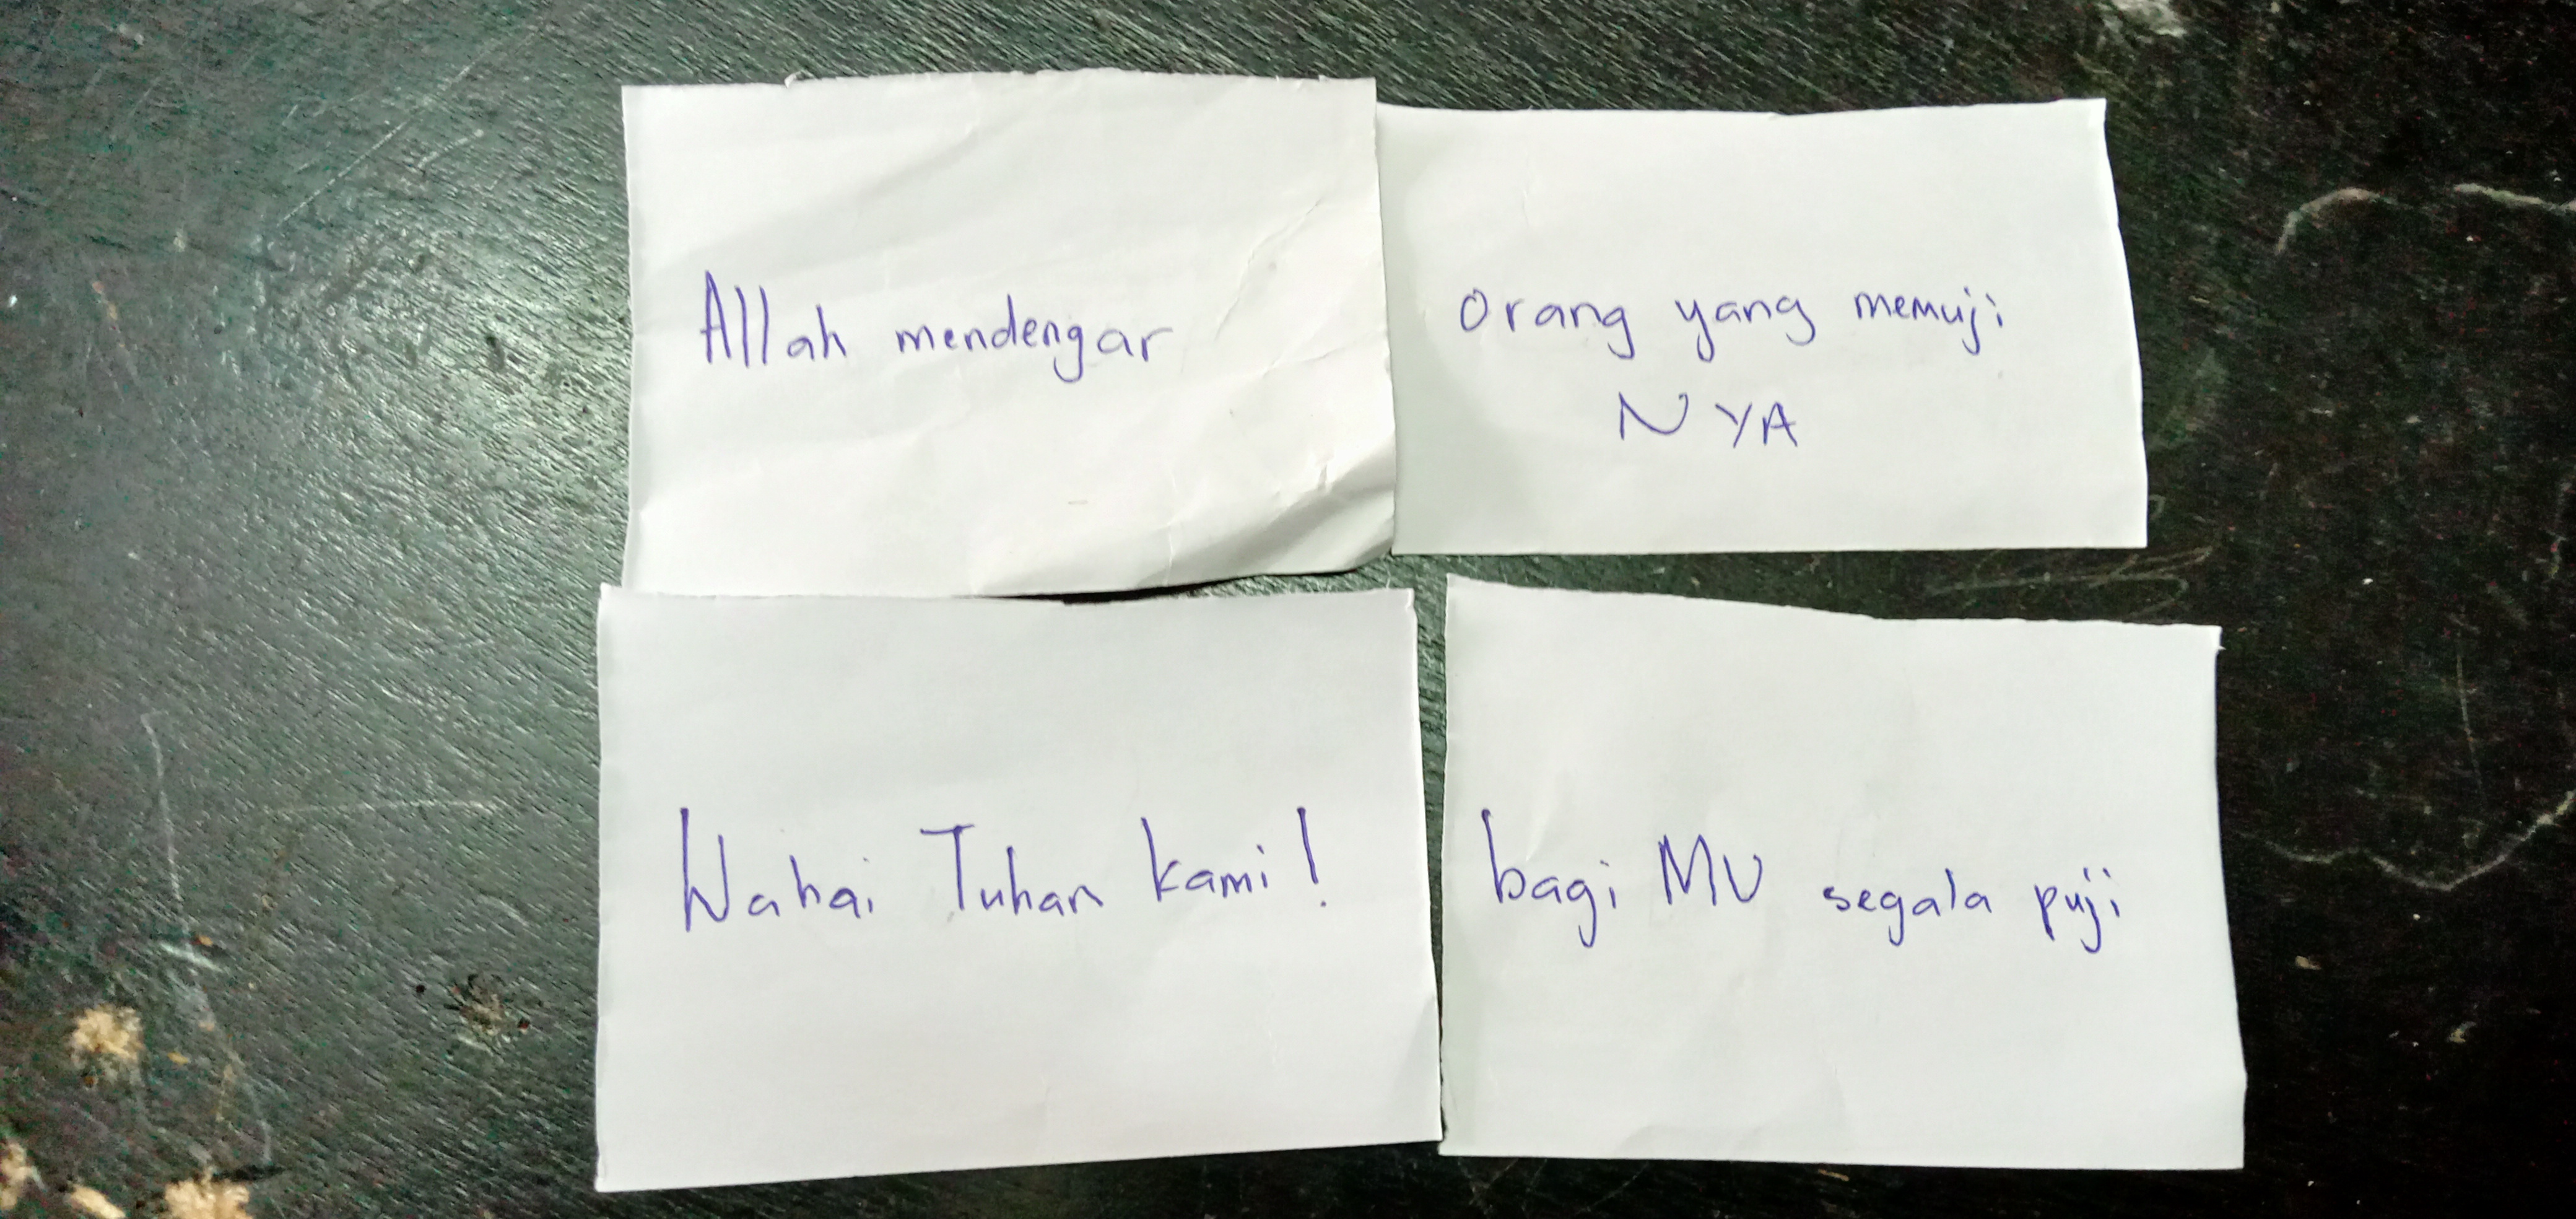 Allah mendengar
orang yang memuji
NYA
Wahai Tuhan kami!
bagi MU segala puji